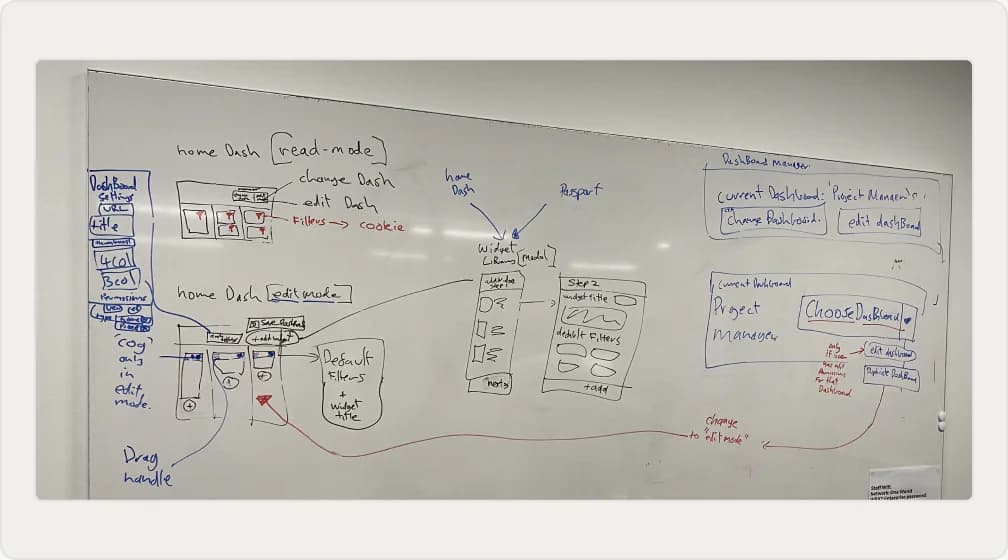 home Dash [read-mode]
change Dash
edit Dash
Filters → cookie
DashBoard
Settings
URL
title
4 COL
3 COL
Permissions
"cog"
only
in
edit
mode.
Drag
handle
home Dash [edit mode]
+ add widget
Default
Filters
+
Widget
title
home
Dash
Passport
Widget
Library [modal]
step 1
next >
Step 2
widget title
default Filters
+ add
DashBoard manager
Current Dashboard: 'Project Manager's'
Change Dashboard.
edit dashBoard
Current Dashboard
Project
manager
Choose Dashboard
edit dashboard
Duplicate DashBoard
only
if user
Permissions
For that
Dashboard
change
to "edit mode"
Staff Wifi: